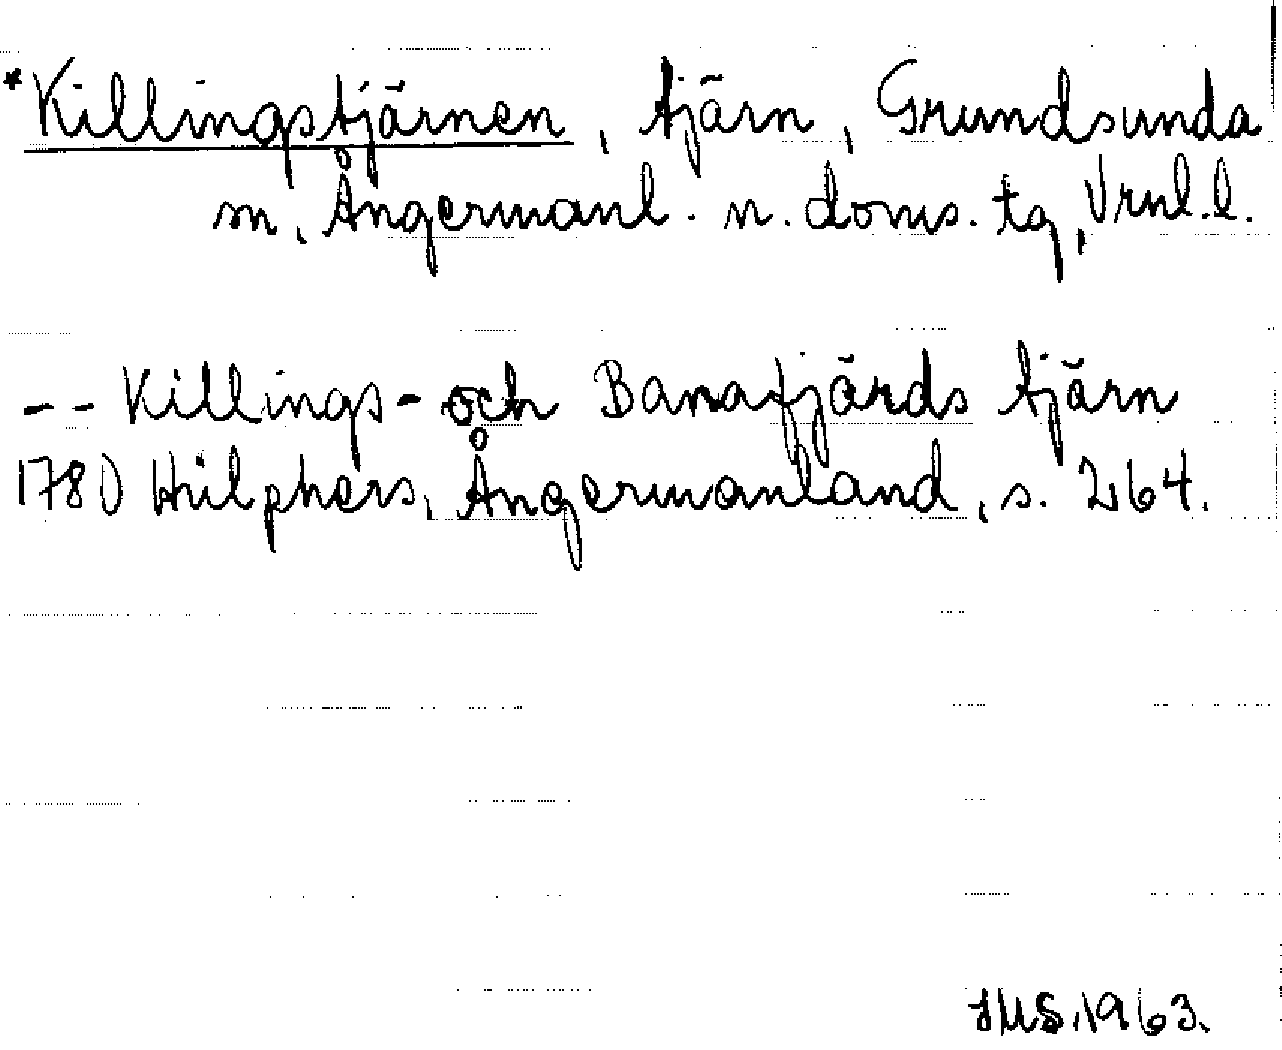 *Killingstjärnen, tjärn, Grundsunda
sn, Ångermanl. n. doms. tg, Vrnl. l.
-- Killings- och Banafjärds tjärn
1780 Hülphers, Ångermanland, s. 264.
JMS. 1963.